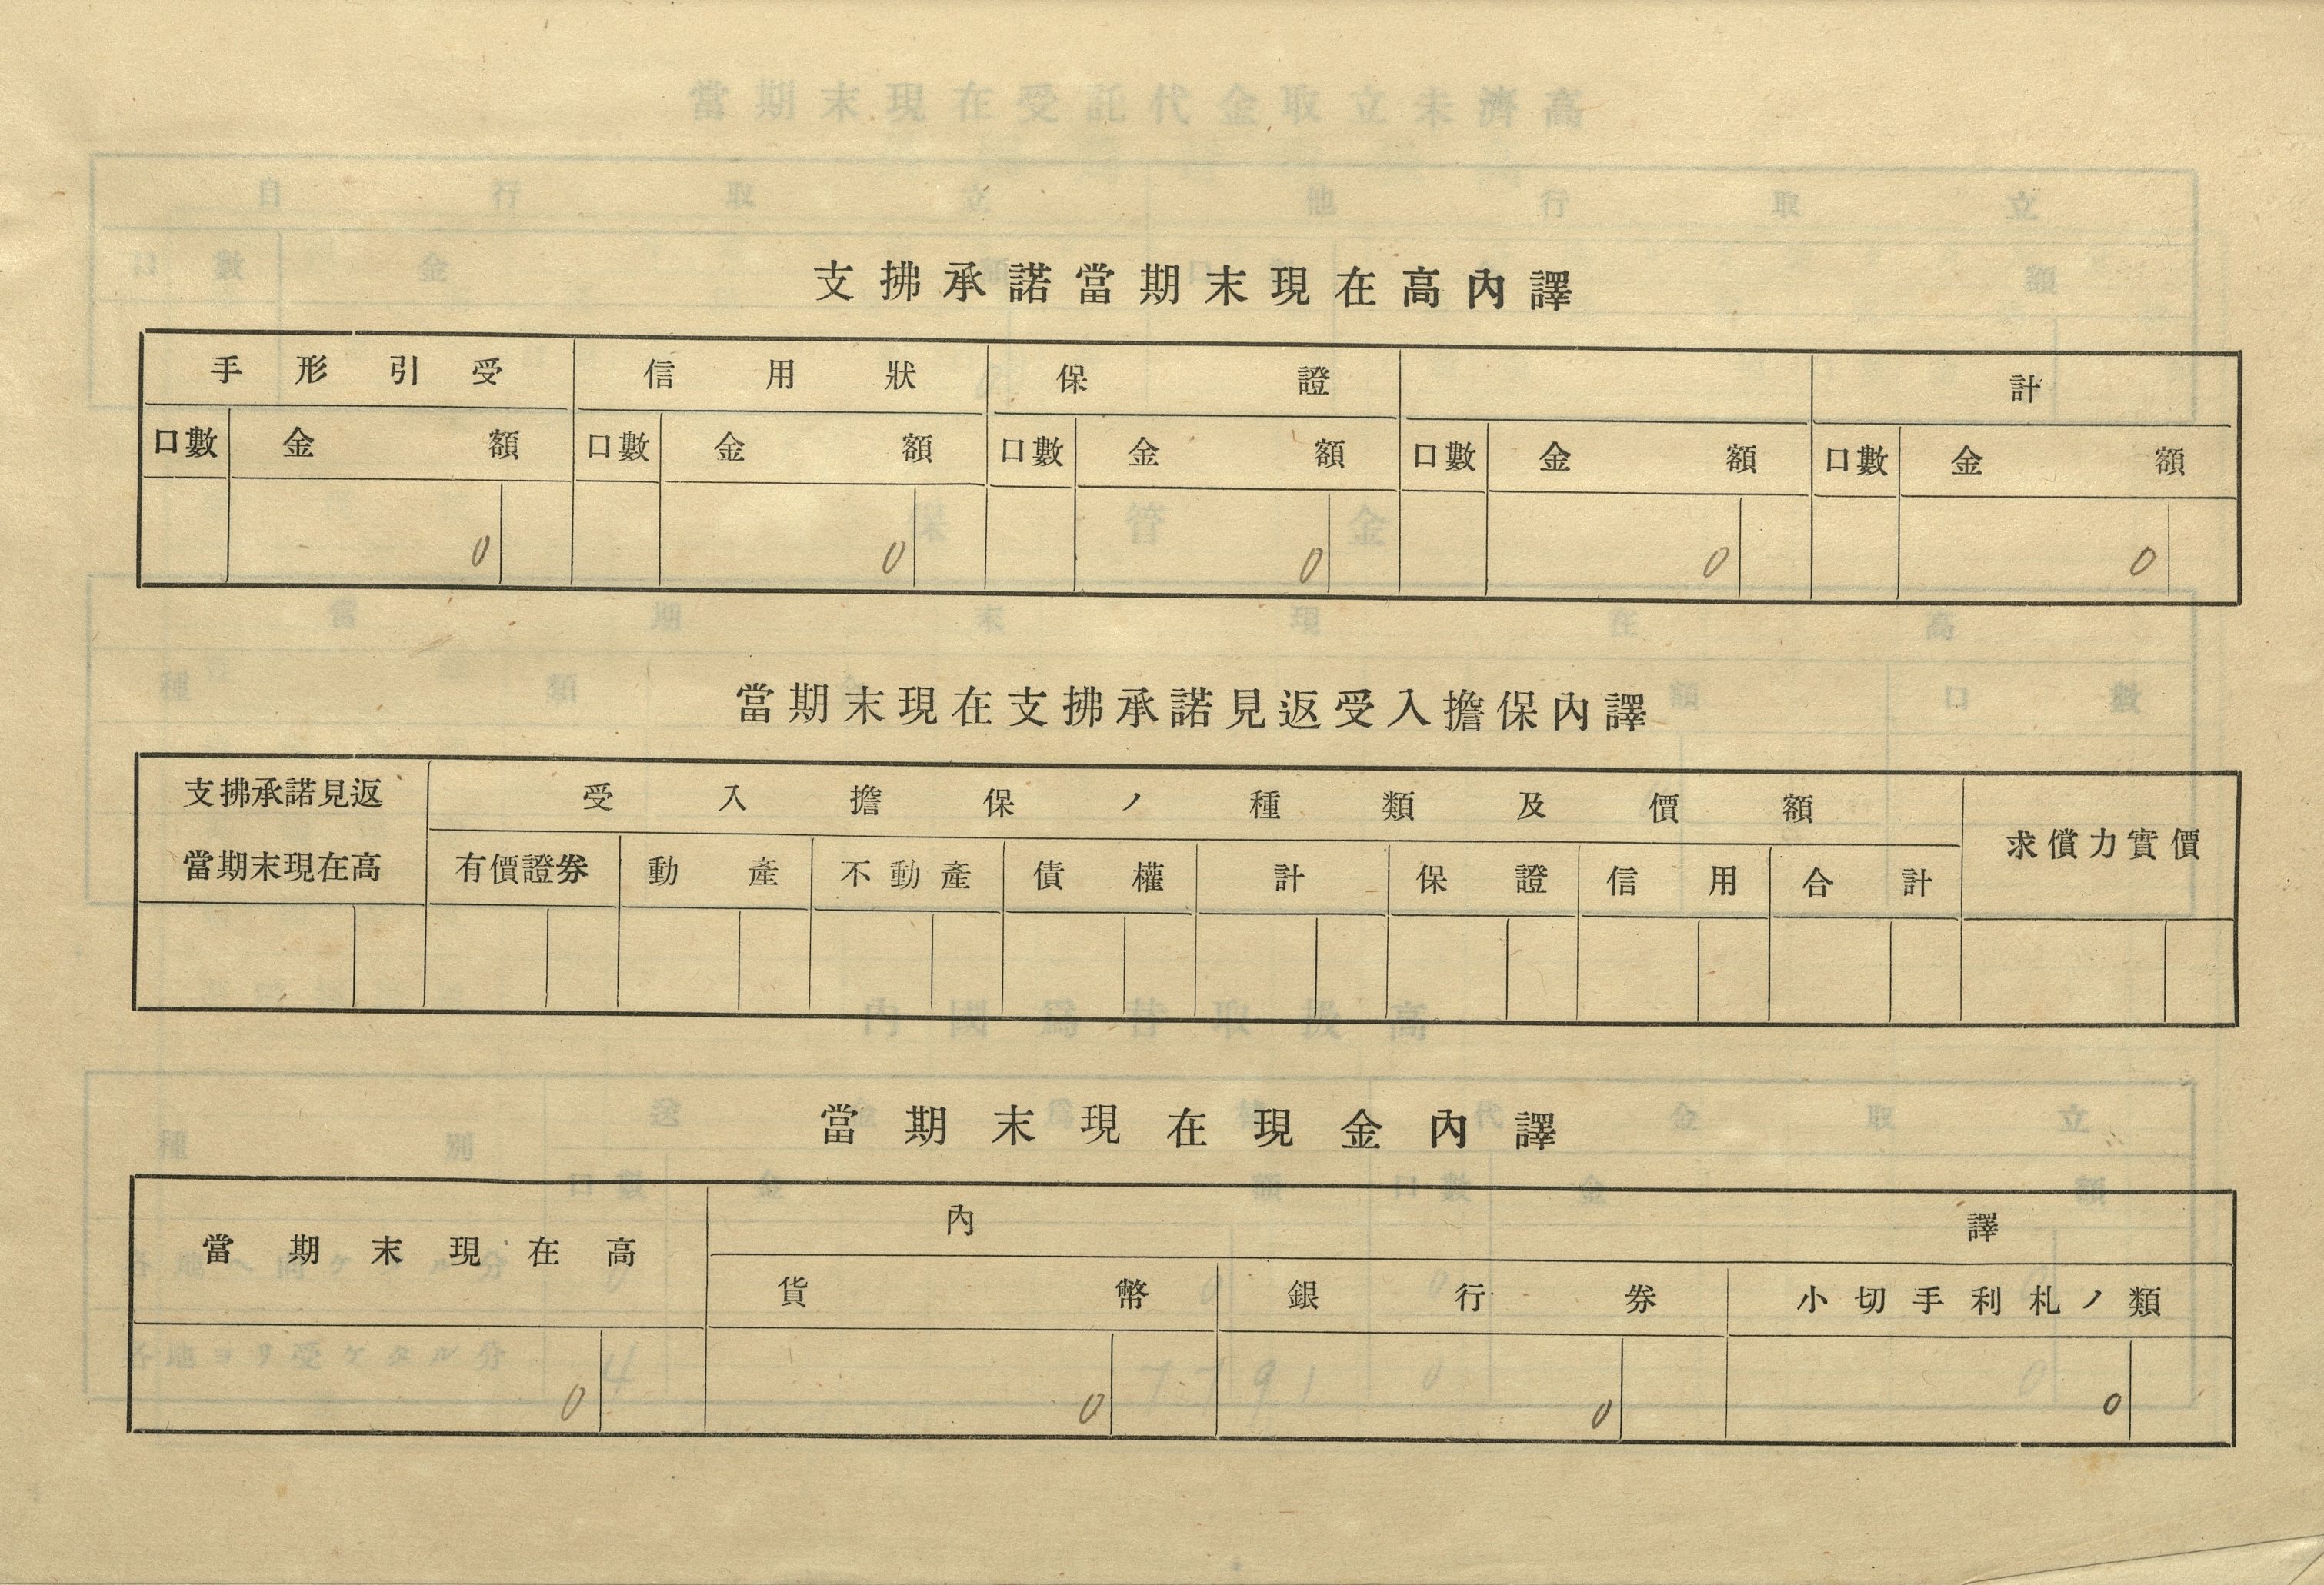 支拂承諾當期末現在高內譯
手形引受 信用狀 保證 計
口數 金額 口數 金額 口數 金額 口數 金額 口數 金額
0 0 0 0 0
當期末現在支拂承諾見返受入擔保內譯
支拂承諾見返當期末現在高 受入擔保ノ種類及價額 求償力實價
有價證券 動產 不動產 債權 計 保證 信用 合計
當期末現在現金內譯
當期末現在高 內譯
貨幣 銀行券 小切手利札ノ類
0 0 0 0